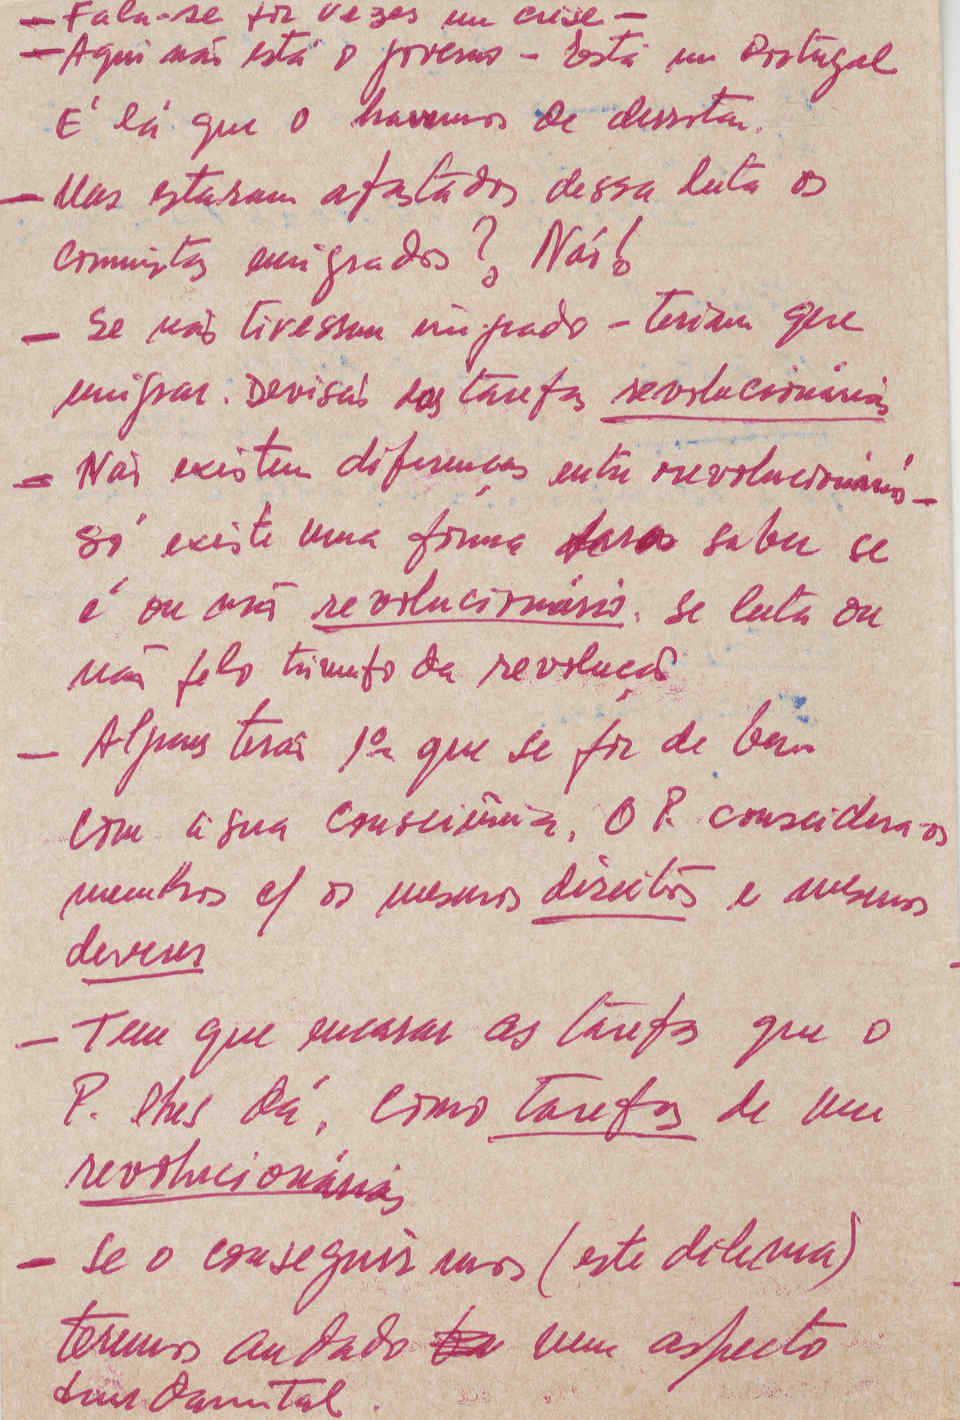 — Fala-se por vezes em crise —
— Aqui não está o governo — Está em Portugal
É lá que o havemos de derrotar.
— Mas estaram afastados dessa luta os
comunistas emigrados? Não!
— Se não tivessem emigrado — teriam que
emigrar. Devisão das tarefas revolucionárias
— Não existem diferenças entre revolucionários —
só existe uma forma para saber se
é ou não revolucionário. Se luta ou
não pelo triunfo da revolução
— Alguns terão que se pôr de bem
com a sua consciência. O P. considera-os
membros c/ os mesmos direitos e mesmos
deveres
— Tem que encarar as tarefas que o
P. lhes dá, como tarefas de um
revolucionários
— Se o conseguirmos (este dilema)
teremos andado num aspecto
fundamental.